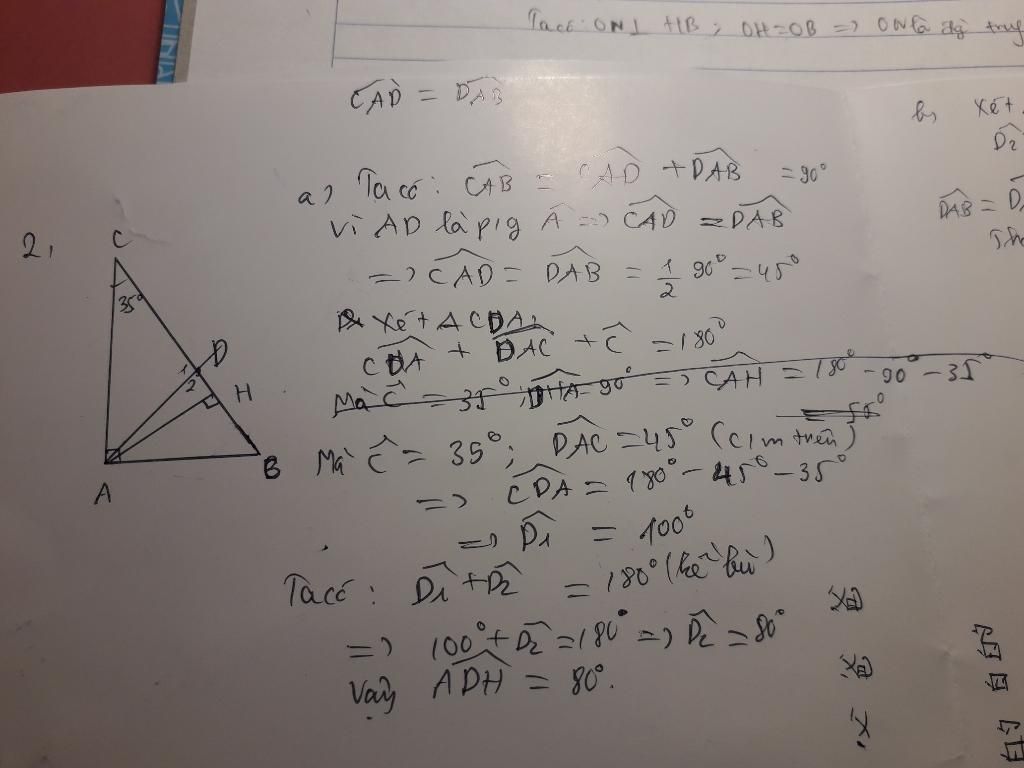 Ta có: ON⊥ HB ; OH=OB => ON là
CAD̂ = DAB̂
a, Ta có: CAB̂ = CAD̂ + DAB̂ = 90°
Vì AD là p/g Â => CAD̂ = DAB̂
=> CAD̂ = DAB̂ = 1/2 90° = 45°
Xét Δ CDA:
CDA + DAĈ + Ĉ = 180°
Mà Ĉ = 35°; DHA 90° => CAĤ = 180° - 90° - 35°
Mà Ĉ = 35°; DAĈ = 45° (c/m trên)
=> CDÂ = 180° - 45° - 35°
=> D̂1 = 100°
Ta có: D̂1 + D̂2 = 180° (kề bù)
=> 100° + D̂2 = 180° => D̂2 = 80°
Vậy ADĤ = 80°.
2,
C
35°
1
D
2
H
A
B
b, Xét
D̂2
DAB̂ =